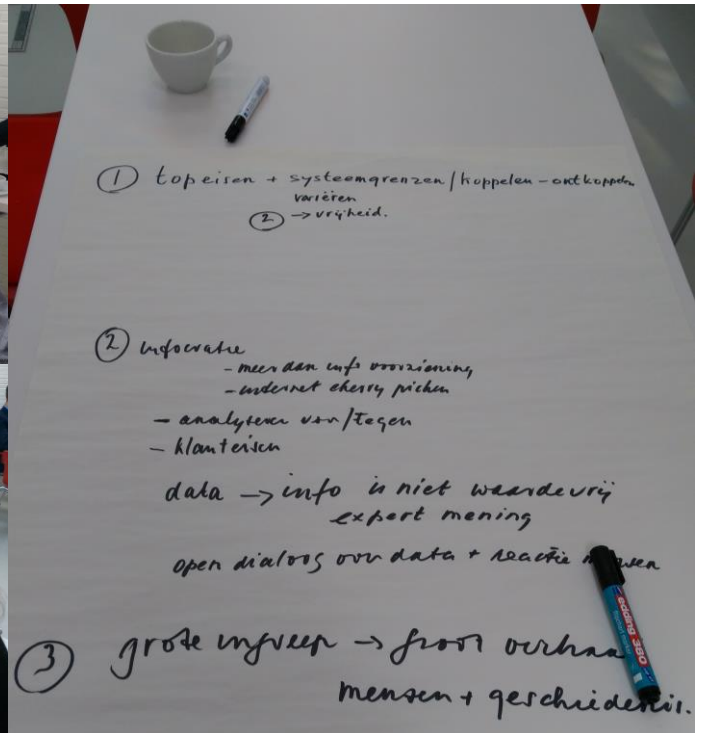 ① topeisen + systeemgrenzen / koppelen - ontkoppelen
variëren
② → vrijheid.
② infocratie
- meer dan info voorziening
- internet cherry picken
- analyseren voor/tegen
- klanteisen
data → info is niet waardevrij
expert mening
open dialoog over data + reactie mensen
③ grote ingreep → groot verhaal
mensen + geschiedenis.
edding 380